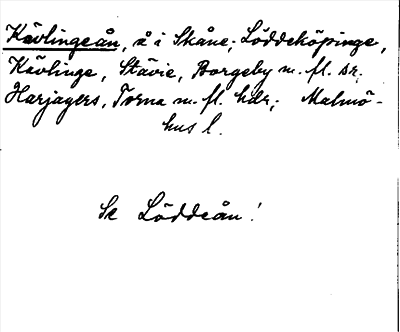 Kävlingeån, å i Skåne; Löddeköpinge,
Kävlinge, Stävie, Borgeby m. fl. sr.
Harjagers, Torna m. fl. hdr; Malmö-
hus l.
Se Löddeån!